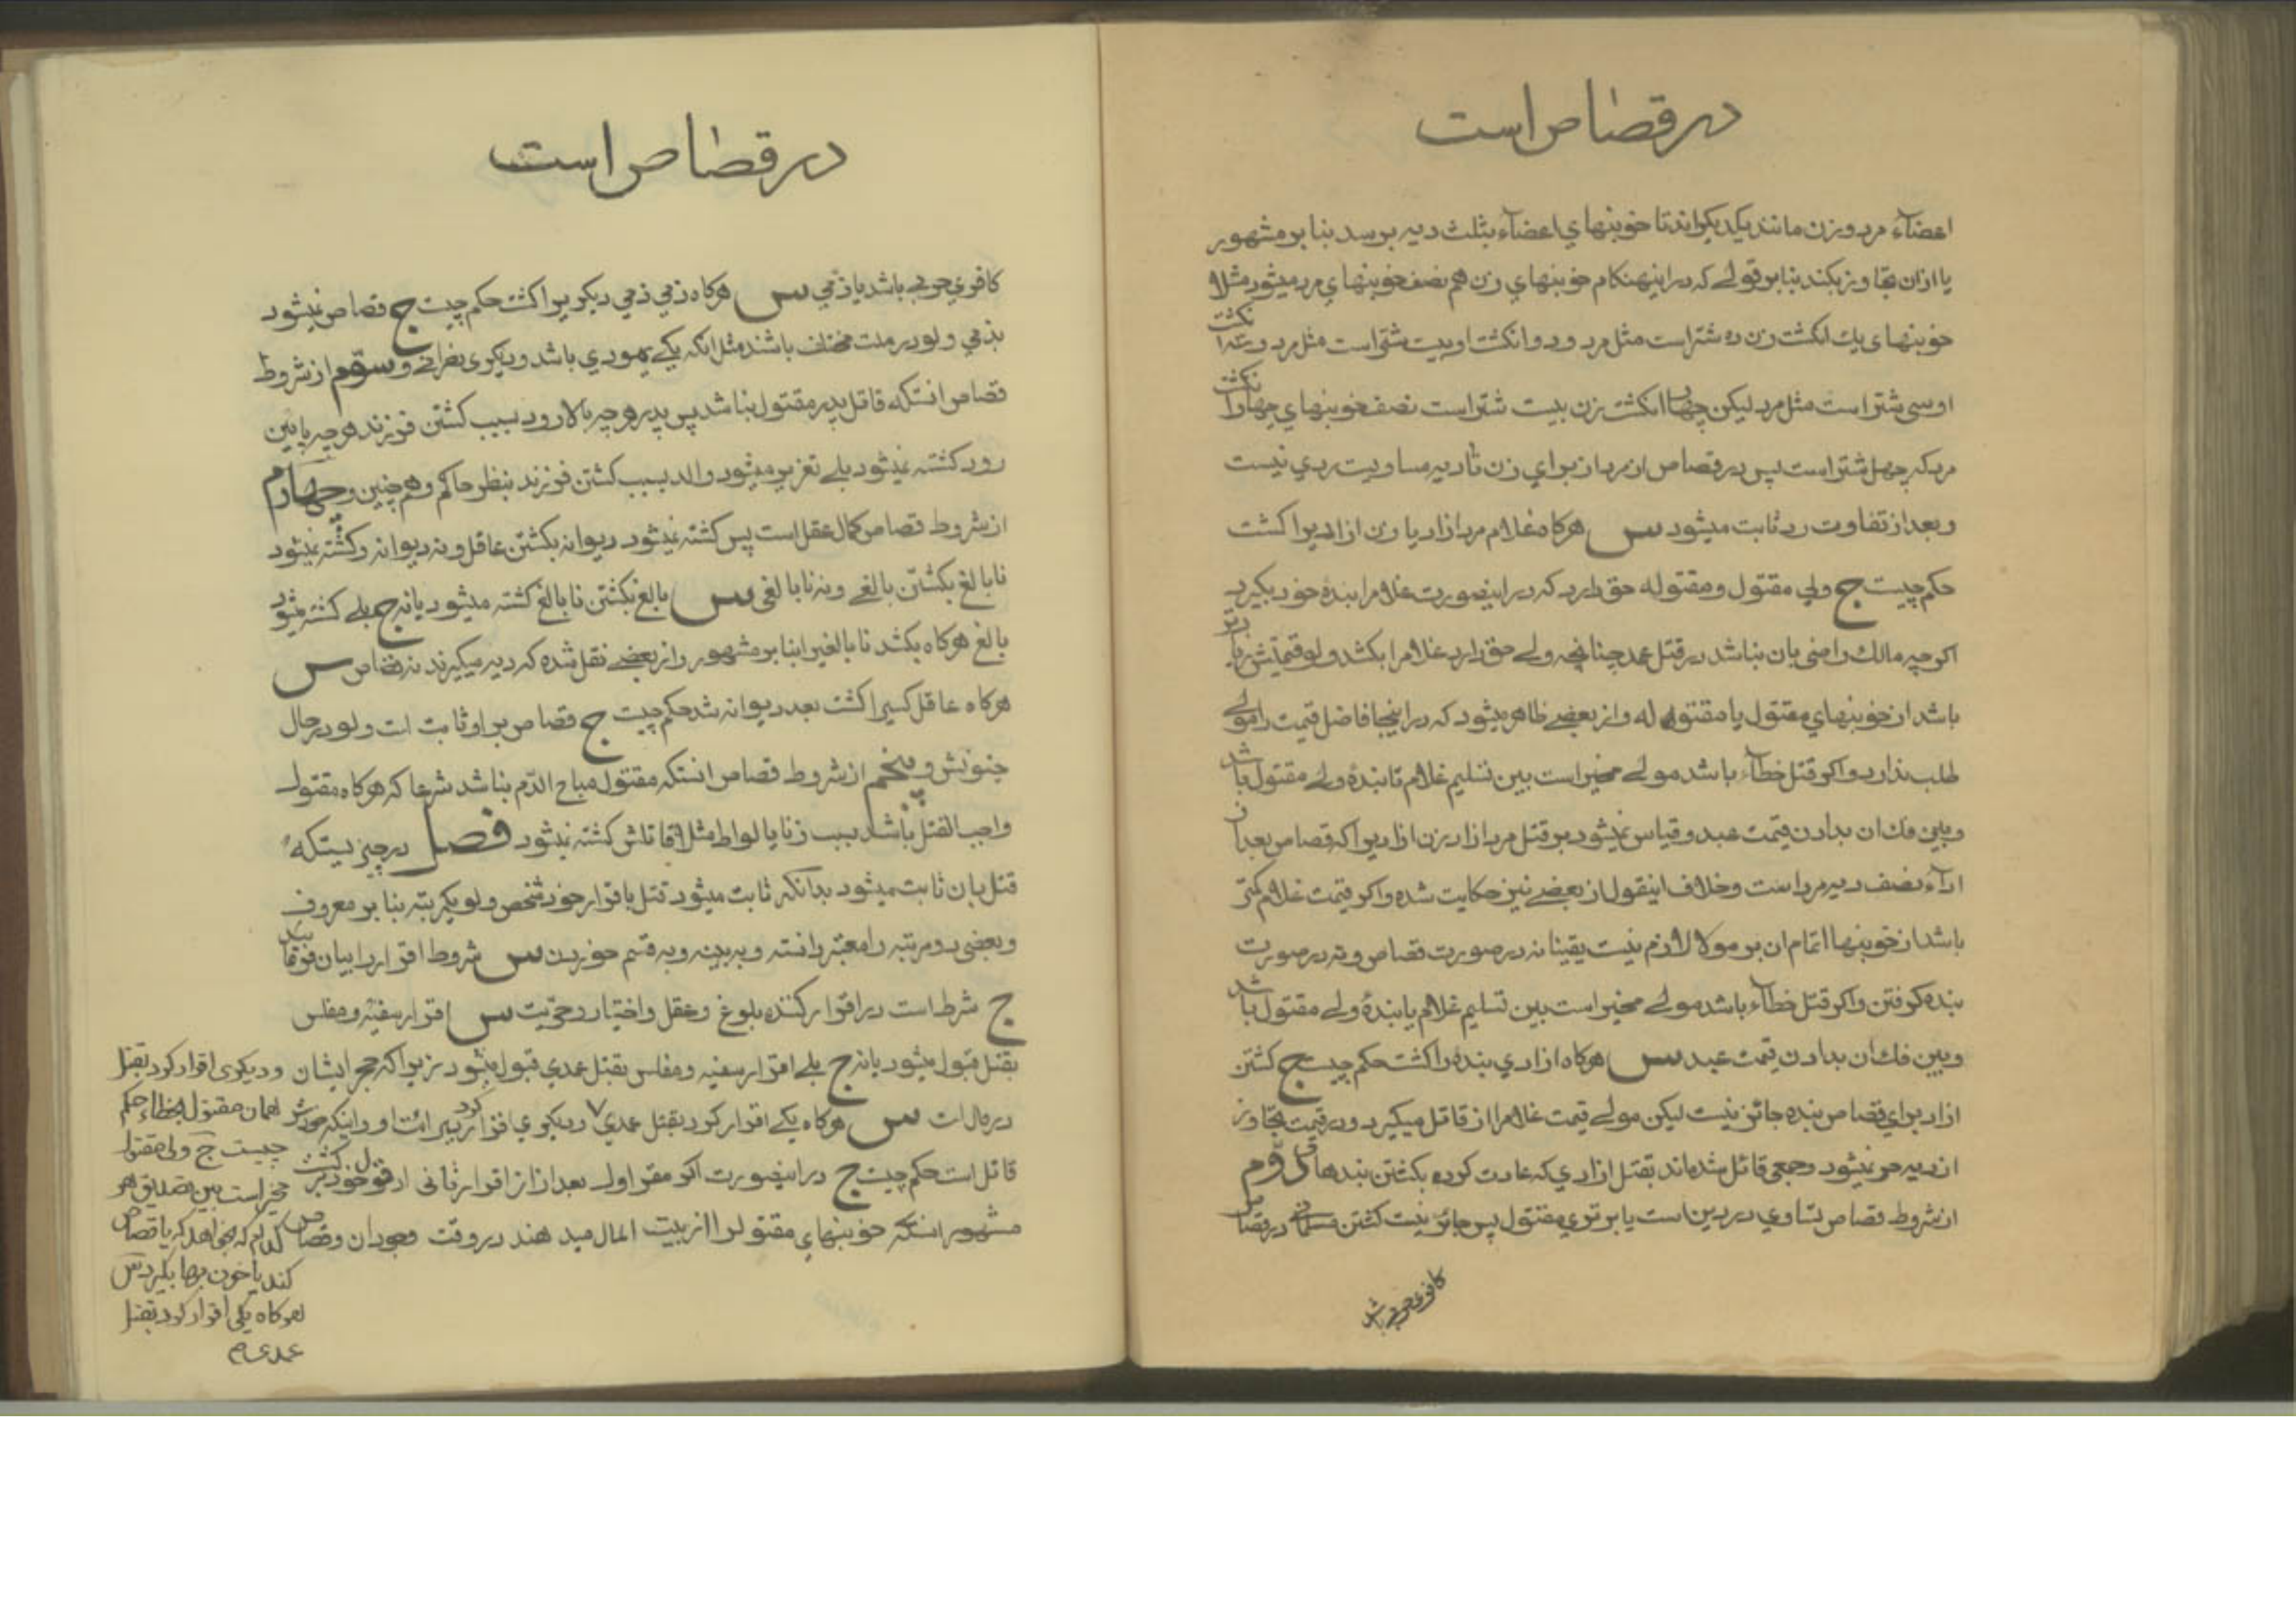 در قصاص است
اعضآء مرد و زن مانند یکدیکراند تا خونبهای اعضآء بثلث دیه برسد بنا بر مشهور
یا ازان تجاوز بکند بنابر قولے که در اینهنکام خونبهای زن هم نصف خونبهای مرد میشود مثلا
خونبهای یك انکشت زن ده شتر است مثل مرد و دو انکشت او بیست شتر است مثل مرد و سه انکشت
او سی شتر است مثل مرد لیکن چهار انکشت زن بیست شتر است نصف خونبهای چهار انکشت
مرد که چهل شتر است پس در قصاص از مرد از برای زن تا دیه مساویست ردی نیست
و بعد از تفاوت رد ثابت میشود س هرکاه غلام مرد ازاد یا زن ازادیرا کشت
حکم چیست ج ولی مقتول و مقتوله حق دارد که در اینصورت غلامرا بندۀ خود بکیرد
اکرچه مالك راضی بان نباشد در قتل عمد چنانچه ولے حق دارد غلامرا بکشد ولو قیمتش زیادتر
باشد از خونبهای مقتول یا مقتوله و از بعضے ظاهر میشود که در اینجا فاضل قیمت را مولے
طلب ندارد و اکر قتل خطآء باشد مولے مخیر است بین تسلیم غلام تا بندۀ ولے مقتول باشد
و بین فك ان بدادن قیمت عبد و قیاس نمیشود بر قتل مرد ازاد زن ازادیرا که قصاص بعد از
ادآء نصف دیه مرد است و خلاف اینقول از بعضے نیز حکایت شده و اکر قیمت غلام کمتر
باشد از خونبها اتمام ان بر مولا لازم نیست یقینا نه در صورت قصاص و نه در صورت
بنده کرفتن و اکر قتل خطآء باشد مولے مخیر است بین تسلیم غلام یا بندۀ ولے مقتول باشد
و بین فك ان بدادن قیمت عبد س هرکاه ازادی بنده را کشت حکم چیست ج کشتن
ازاد برای قصاص بنده جائز نیست لیکن مولے قیمت غلامرا از قاتل میکیرد و در قیمت تجاوز
از دیه حر نمیشود و جمعی قائل شده‌اند بقتل ازادی که عادت کرده بکشتن بندها دوّم
از شروط قصاص تساوی در دین است یا برتری مقتول پس جائز نیست کشتن مسلمانے در قصاص
کافری حربی باشد
در قصاص است
کافری حربے باشد یا ذمی س هرکاه ذمی ذمی دیکریرا کشت حکم چیست ج قصاص میشود
بذمی ولو در ملت مختلف باشند مثل انکه یکے یهودی باشد و دیکری نصرانے و سوّم از شروط
قصاص انستکه قاتل پدر مقتول نباشد پس پدر هرچه بالا رود بسبب کشتن فرزند هرچه پایین
رود کشته نمیشود بلے تعزیر میشود والد بسبب کشتن فرزند بنظر حاکم و هم چنین و چهارم
از شروط قصاص کمال عقل است پس کشته نمیشود دیوانه بکشتن عاقل و نه دیوانه و کشته نمیشود
نابالغ بکشتن بالغے و نه نابالغی س بالغ بکشتن نابالغ کشته میشود یا نه ج بلے کشته میشود
بالغ هرکاه بکشد نابالغیرا بنا بر مشهور و از بعضے نقل شده که دیه میکیرند نه قصاص س
هرکاه عاقل کسیرا کشت بعد دیوانه شد حکم چیست ج قصاص بر او ثابت است ولو در حال
جنونش و پنجم از شروط قصاص انستکه مقتول مباح الدّم نباشد شرعا که هرکاه مقتول
واجب القتل باشد بسبب زنا یا لواط مثلا قاتلش کشته نمیشود فصل در چیزیستکه
قتل بان ثابت میشود بدانکه ثابت میشود قتل باقرار خود شخص ولو یکمرتبه بنا بر معروف
و بعضی دو مرتبه را معتبر دانسته و به بینه و به قسم خوردن س شروط اقرار را بیان فرمائید
ج شرط است در اقرار کننده بلوغ و عقل و اختیار و حریت س اقرار سفیه و مفلس
بقتل قبول میشود یا نه ج بلے اقرار سفیه و مفلس بقتل عمدی قبول میشود زیرا که حجر ایشان
در مال است س هرکاه یکے اقرار کرد بقتل عمدی و دیکری اقرار کرد ببرائت او و اینکه خودش
قاتل است حکم چیست ج در اینصورت اکر مقر اول بعد از اقرار ثانی از قول خود برکشت
مشهور انستکه خونبهای مقتولرا از بیت المال میدهند در وقت وجود ان و قصاص
و دیکری اقرار کرد بقتل
همان مقتول بخطاء حکم
چیست ج ولی مقتول
مخیر است بین تصدیق هر
کدام که بخواهد که یا قصاص
کند یا خون بها بکیرد س
هرکاه یکی اقرار کرد بقتل
عمدی م